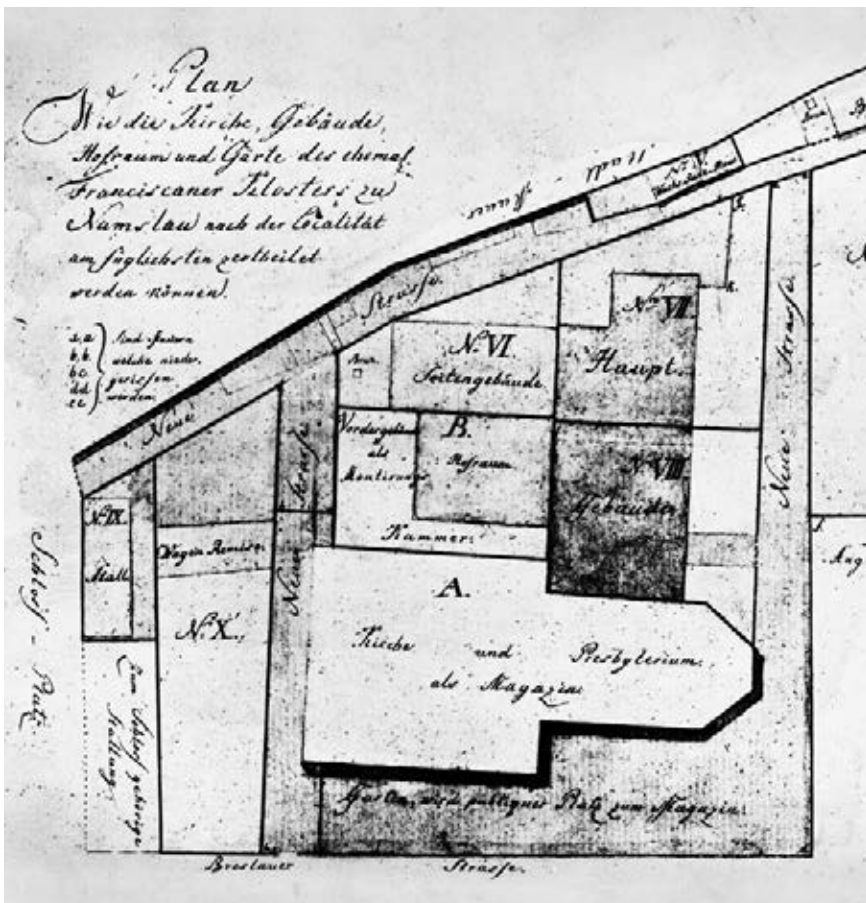 Plan
Wie die Kirche, Gebäude,
Hofraum und Gärte des ehemal.
Franciscaner Klosters zu
Namslau nach der Localität
am füglichsten zertheilet
werden können.
a, a
b, b
b c
d d
e e
sind Mauern
welche nieder,
gerissen
werden.
Stadt Mauer.
Neue Strasse.
Neue Strasse
Neue Strasse.
No. VI
Seitengebäude.
No. VII
Haupt.
No. VIII
Gebäude
B.
Hofraum
als
Montirungs
Kammer.
No. IX
Stall.
Wagen Remise.
No. X.
A.
Kirche und Presbyterium.
als Magazin.
Schloss-Platz.
Zum Schloss gehörige
Stallung.
Garten, wird publiquer Platz zum Magazin.
Breslauer Strasse.